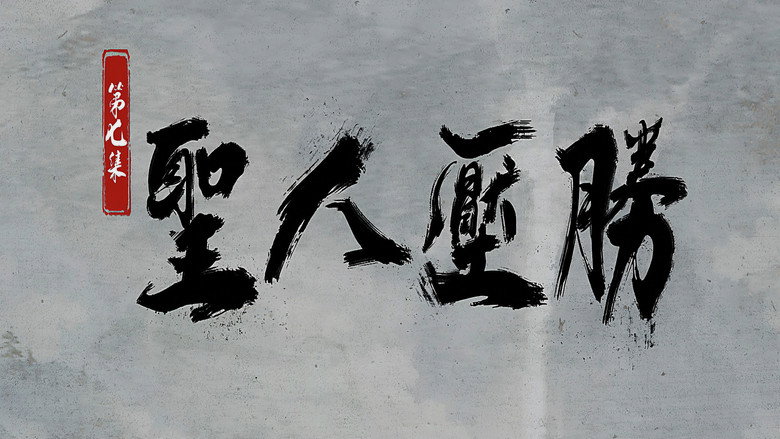 第七集
聖人壓勝